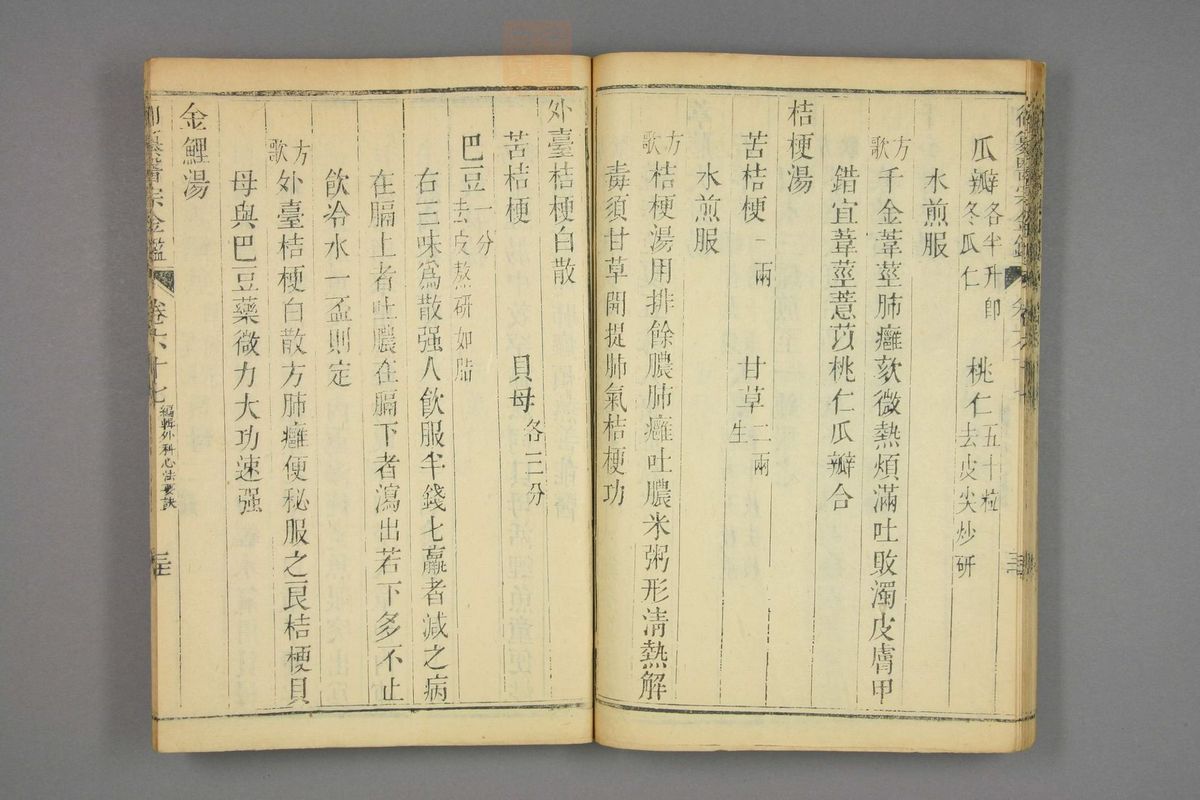 瓜瓣各半升即冬瓜仁 桃仁五十粒去皮尖炒研
水煎服
方歌 千金葦莖肺癰欬微熱煩滿吐敗濁皮膚甲
錯宜葦莖薏苡桃仁瓜瓣合
桔梗湯
苦桔梗一兩 甘草二兩生
水煎服
方歌 桔梗湯用排餘膿肺癰吐膿米粥形清熱解
毒須甘草開提肺氣桔梗功
外臺桔梗白散
苦桔梗 貝母各三分
巴豆一分去皮熬研如脂
右三味爲散强人飲服半錢匕羸者減之病
在膈上者吐膿在膈下者瀉出若下多不止
飲冷水一盃則定
方歌 外臺桔梗白散方肺癰便秘服之良桔梗貝
母與巴豆藥微力大功速强
金鯉湯
醫宗金鑑 卷六十七 編輯外科心法要訣